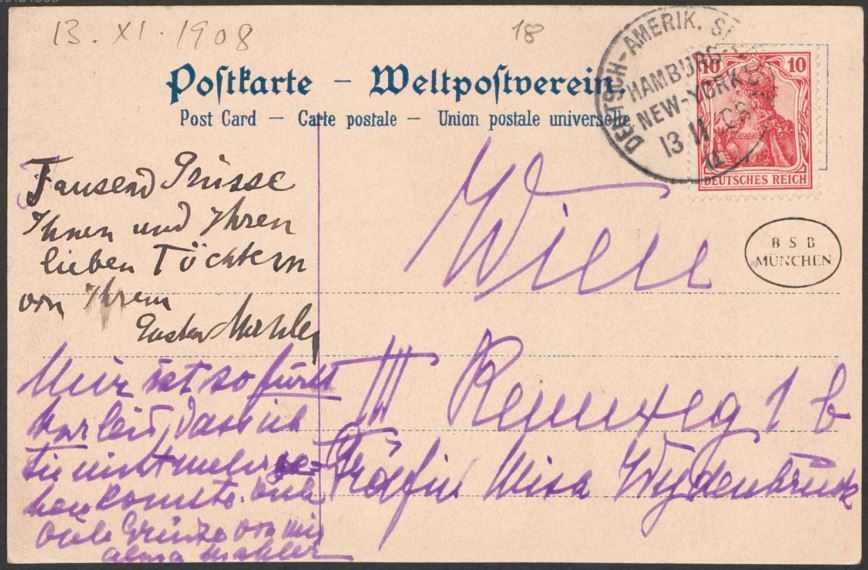 13. XI. 1908
18
Postkarte – Weltpostverein.
Post Card – Carte postale – Union postale universelle
DEUTSCH-AMERIK.
HAMBURG-
NEW-YORK
13 11 08
10 10
DEUTSCHES REICH
B S B
MÜNCHEN
Tausend Grüsse
Ihnen und Ihren
lieben Töchtern
von Ihrem
Gustav Mahler
Mir ist so furcht
bar leid, dass ich
Sie nicht mehr se-
hen konnte. Viele
viele Grüsse von mir
Alma Mahler
Wien
III Rennweg 1 b
Gräfin Misa Wydenbruck